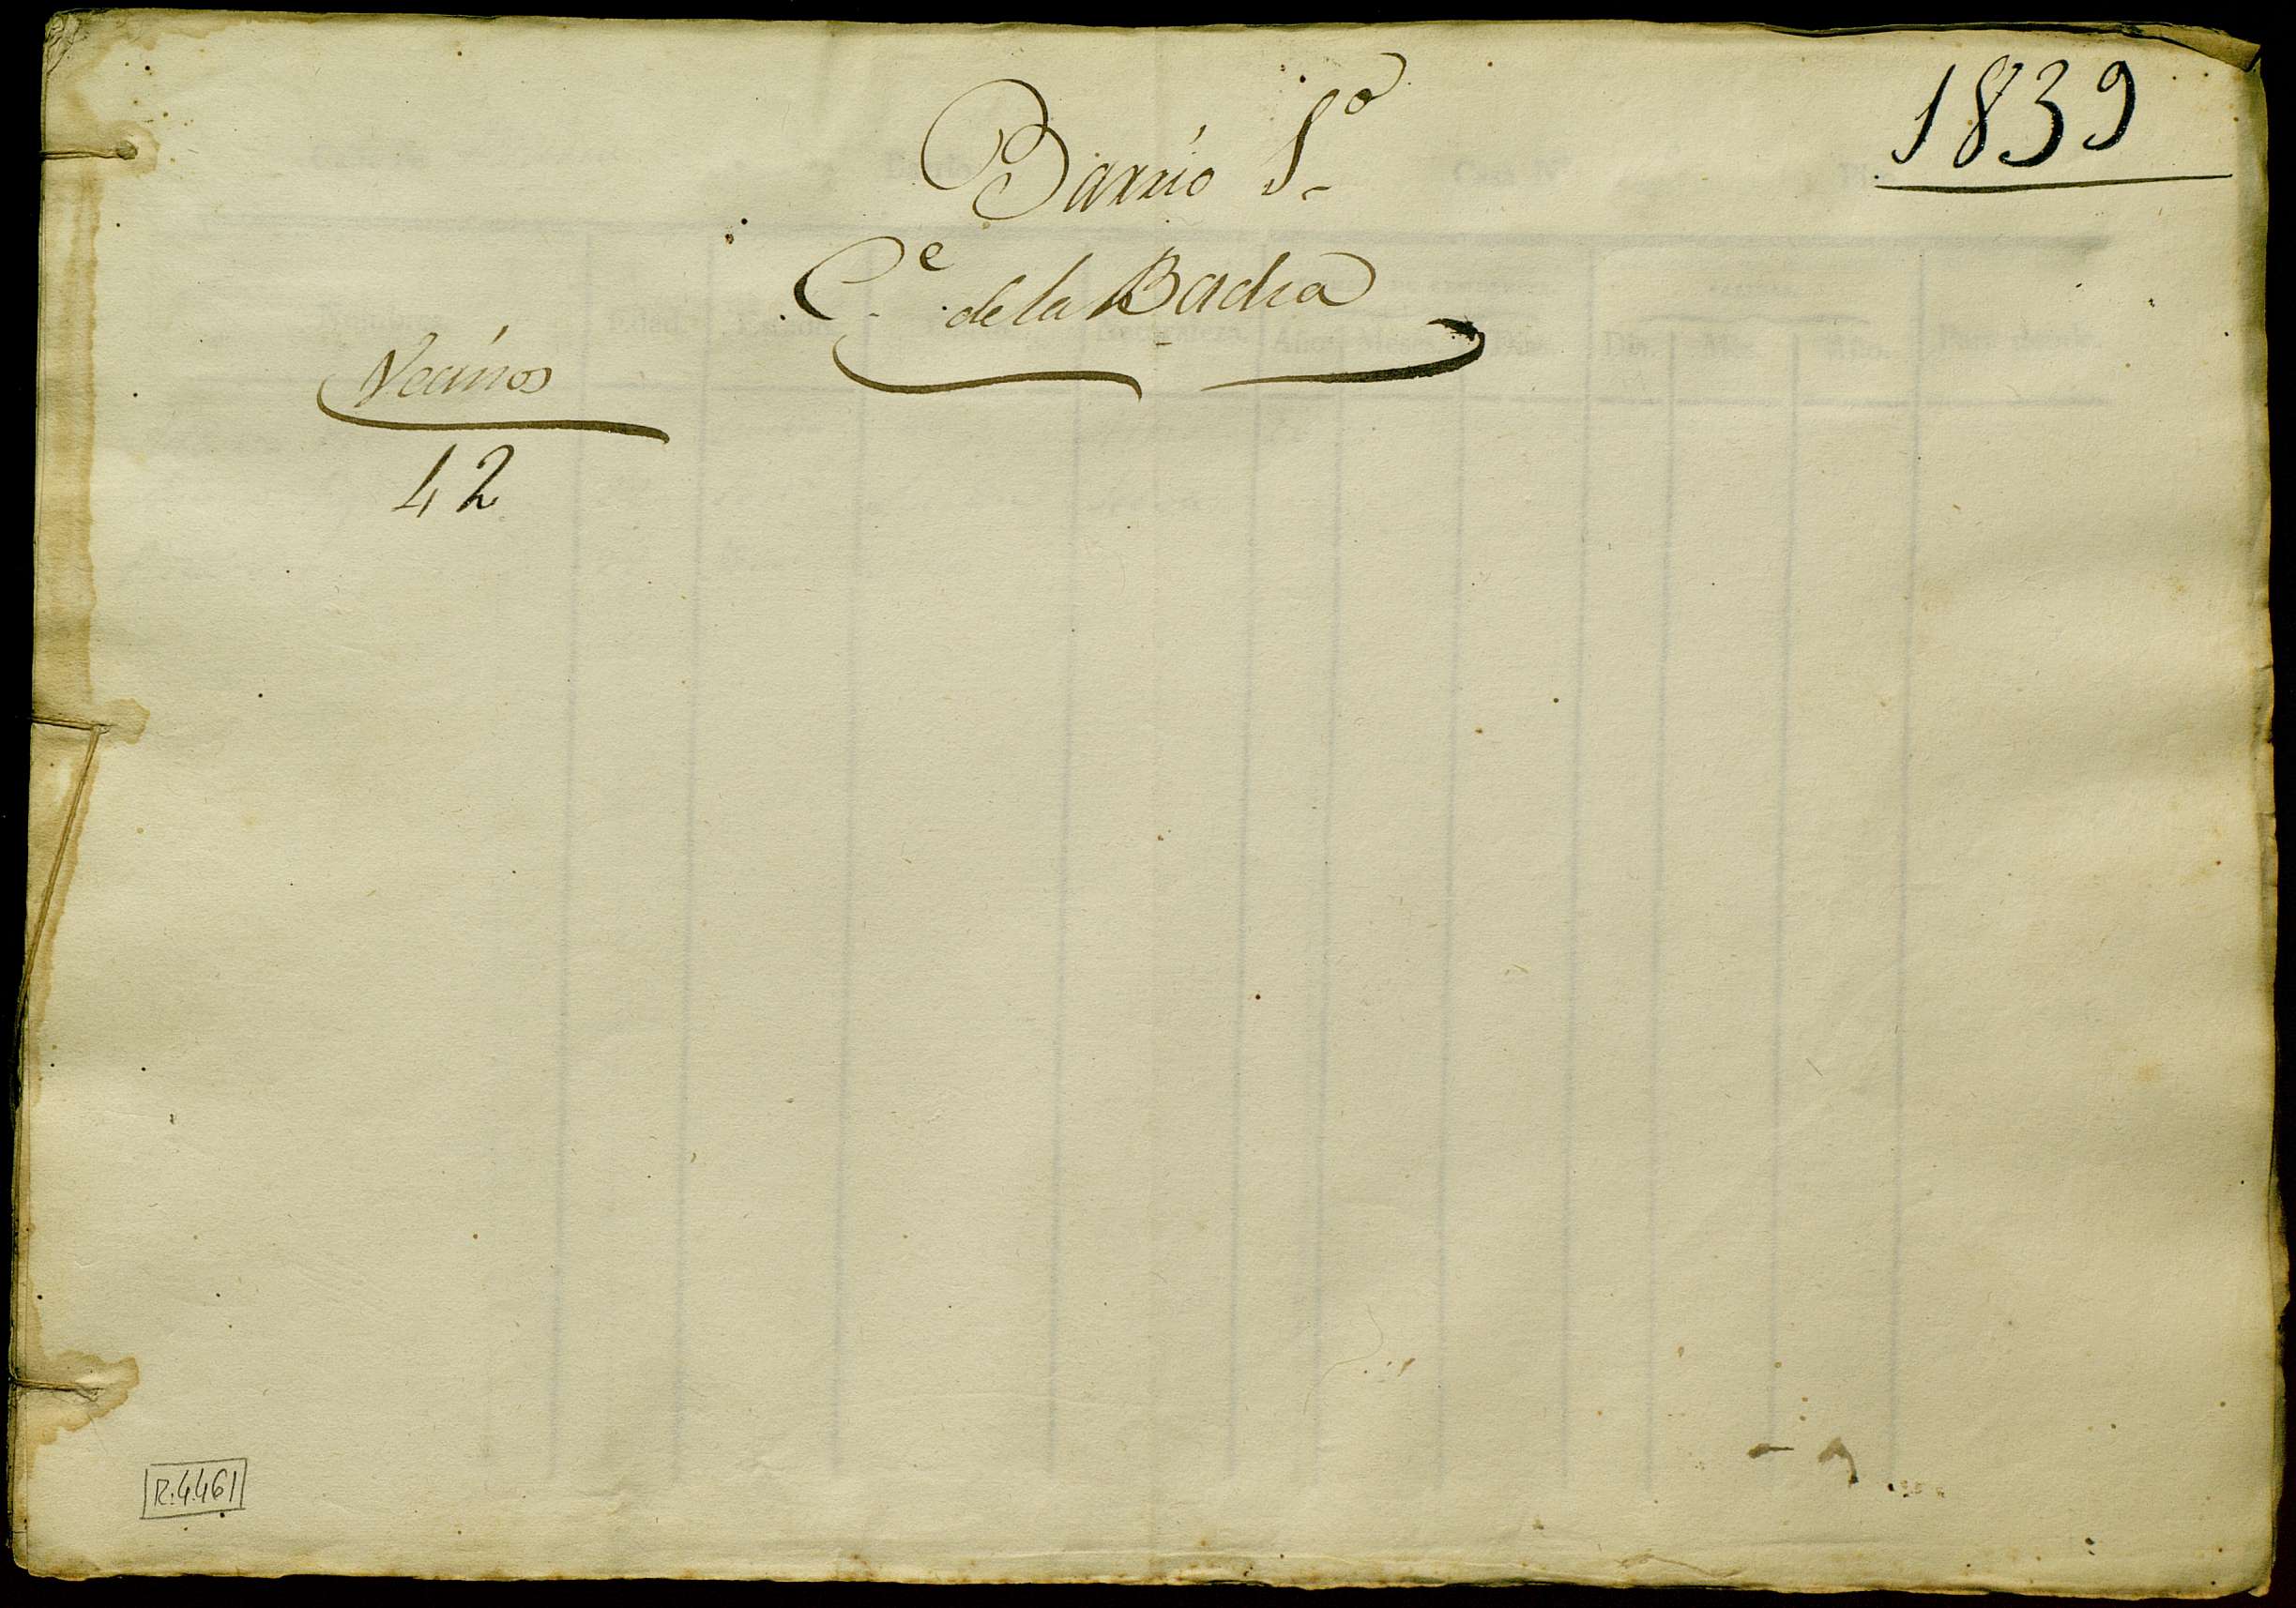 1839
Barrio 1º
Cᵉ de la Badia
Vecinos
42
R.4.461